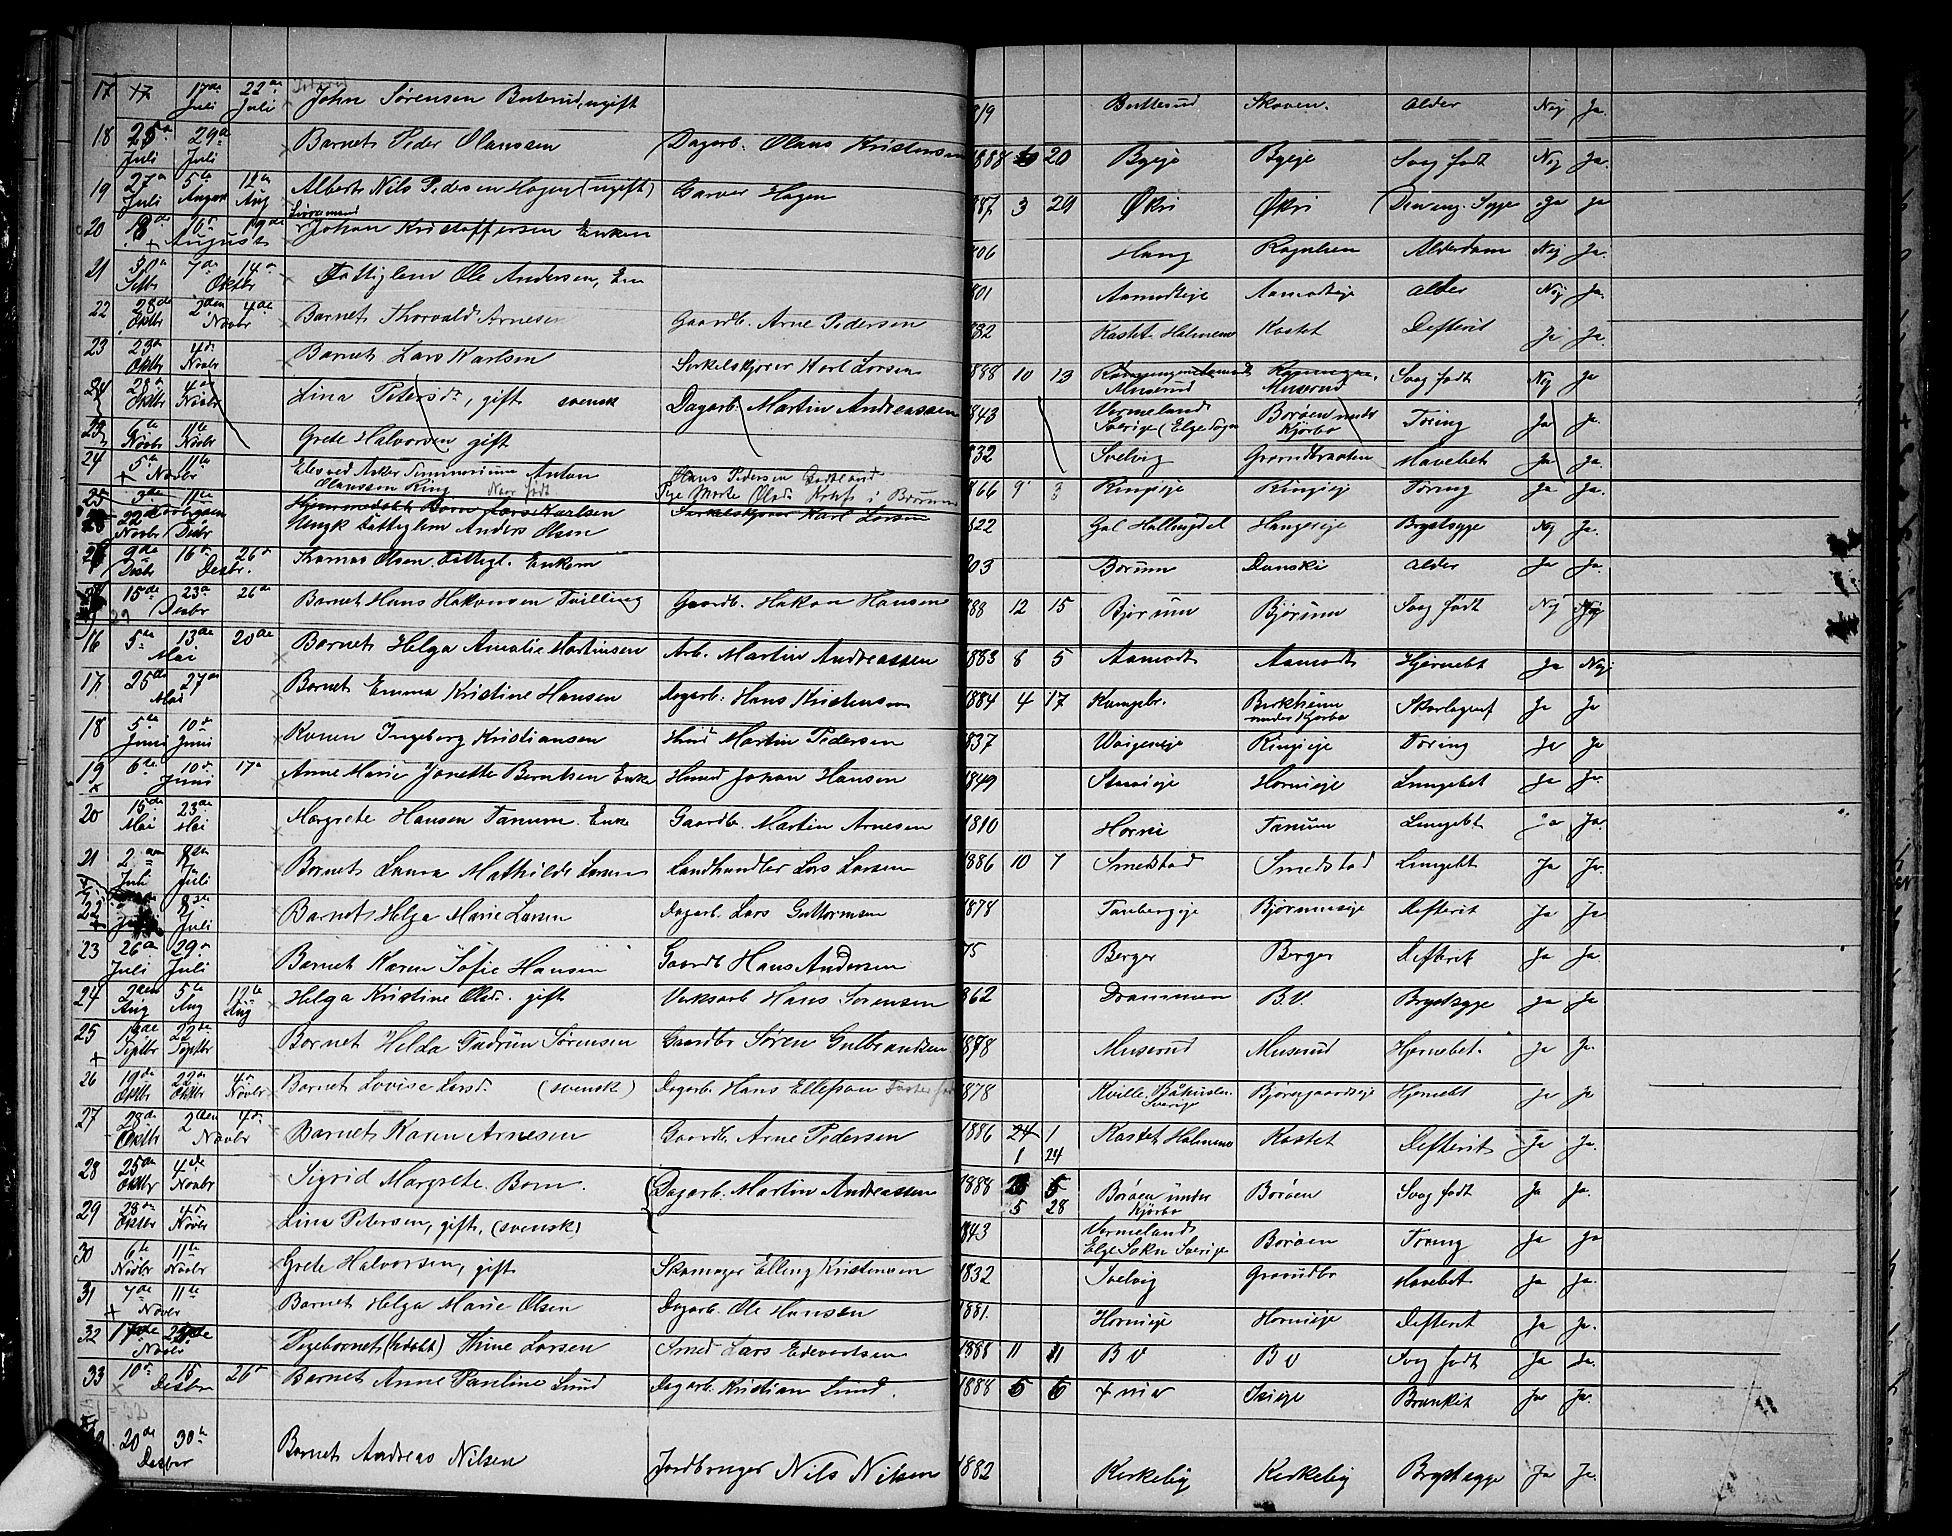 17 17 17de Juli 22de Juli John Sørensen Buterud, ugift 819 Buttesud Skoven. Alder Nej Ja.
18 25de Juli 29de Juli Barnet Peder Olaussen Dagarb. Olaus Kristensen 1888 20 Byeje Byeje Svag født Nej Ja.
19 27de Juli 5te August 12te Aug Albert Nils Pedersen Hagen (ugift) Garver Hagen 887 3 29 Økri Økri Ja Ja
20 8de 16de 19de August Johan Kristoffersen Enkem 806 Haug Alderdom Nej Ja.
21 30de Setbr 7de 14de Oktbr Fattiglem Ole Andersen, Em 801 Aamodteje Aamodteje Alder Nej Ja.
22 28de Oktbr 2den 4de Novbr Barnet Thorvald Arnesen Gaardb. Arne Pedersen 882 Kastet Holmene Kastet Defterit Ja Ja.
23 23de Oktbr 4de Novbr Barnet Lars Karlsen Sirkelskjører Karl Larsen 1888 10 13 Muserud Muserud Svag født Nej Ja
24 28de Oktbr 4de Novbr Lina Petersdr, gift svensk Dagarb. Martin Andreassen 1843 Vermeland Sverige (Elge Sogn Borøen under Kjørbo Tæring Ja Ja.
23 6te Novbr 11te Novbr Grete Halvorsen gift 832 Svelvig Grændbraaten Mavebet Ja Ja.
24 5te 11te Novbr Elev ved Asker Seminarium Anton Olaussen Ring Hans Pedersen 866 9 3 Ringieje Ringieje Tæring Ja Ja.
25 3de 11te Hjemmedøbt Barn Lars Karlsen Sirkelskjører Karl Larsen
22de Novbr Desbr Ungk Fattiglem Anders Olsen 822 Gol Hallingdal Haugeseje Brystsyge Nej Ja.
26 9de Desbr 16de 26de Desbr. Thomas Olsen Fattigl. Enkem 803 Bærum Danski Alder Ja Ja.
15de 23de Desbr 26de Barnet Hans Hakonsen Tvilling Gaardb. Hakon Hansen 888 12 15 Bjørum Bjørum Svag født Nej Nej
16 5te 13de Mai 20de Barnet Helga Amalie Martinsen Arb. Martin Andreassen 1883 8 5 Aamodt Aamodt Hjernebt Ja Nej
17 25de 27de Mai Barnet Emma Kristine Hansen Dagarb. Hans Kristensen 1884 4 17 Kampebr. Birkheim under Kjørbo Skarlagenf Ja Ja
18 5te Juni 10de Juni Karen Ingeborg Kristiansen Hmd Martin Pedersen 1837 Ringieje Tæring Ja Ja
19 6te 10de Juni 17de Anne Marie Jonette Berntsen Enke Hmd Johan Hansen 1849 Hornieje Lungebet Ja Ja.
20 15de Mai 23de Mai Margrete Hansen Tanum. Enke Gaardb. Martin Arnesen 1810 Horni Tanum Lungebt Ja Ja.
21 2den Juli 8de Juli Barnet Laura Mathilde Larsen Landhandler Lars Larsen 1886 10 7 Smedstad Smedstad Lungebt Ja Ja.
22 8de Juli Barnet Helga Marie Larsen Dagarb. Lars Guttormsen 1878 Tanbergeje Bjørumseje Defterit Ja Ja
23 26de Juli 29de Juli Barnet Karen Sofie Hansen Gaardb Hans Andersen 75 Berger Berger Defterit Ja Ja.
24 2den Aug 5te Aug 12te Aug Helga Kristine Olsd. gift Verksarb Hans Sørensen 862 Drammen B.V Brystsyge Ja Ja
25 19de Septbr 22de Septbr Barnet Hilda Gudrun Sørensen Gaardbr Søren Gulbrandsen 1878 Muserud Muserud Hjernebet. Ja Ja.
26 19de Oktbr 22de Oktbr 4de Novbr Barnet Lovise Larsd. (svensk) Dagarb. Hans Ellefsen 1878 Kville, Båhuslen Sverige Bjørnegaardseje Hjernebt Ja Ja
27 28de Oktbr 2den 4de Novbr Barnet Karen Arnesen Gaardb. Arne Pedersen 1886 24 1 1 24 Kastet Holmene Kastet Defterit Ja Ja.
28 25de Oktbr 4de Novbr Sigrid Margrete. Barn. Dagarb. Martin Andreassen 1888 5 5 28 Borøen under Kjørbo Borøen Svag født Ja Ja
29 28de Oktbr 4de Novbr Lina Petersen, gift, (svensk) 843 Vermeland Elge Sokn Sverige Borøen Tæring Ja Ja
30 6te Novbr 11te Novbr Grete Halvorsen, gift Skomager Elling Kristensen 1832 Svelvig Grændbr Mavebet Ja Ja
31 7de 11te Novbr Barnet Helga Marie Olsen Dagarb. Ole Hansen 1881. Hornieje Hornieje Defterit Ja Ja.
32 17de 25de Novbr Pigebarnet (hdøbt) Thine Larsen Smed Lars Edvartsen 1888 11 11 B V B V Svag født Ja Ja.
33 10de 15 Desbr 26de Barnet Anne Pauline Lund Dagarb. Kristian Lund. 1888 5 6 Isieje Bronkit Ja Ja.
20de 30te Desbr Barnet Andreas Nilsen Jordbruger Nils Nilsen 1882 Kirkeby Kirkeby Brystsyge Ja Ja.